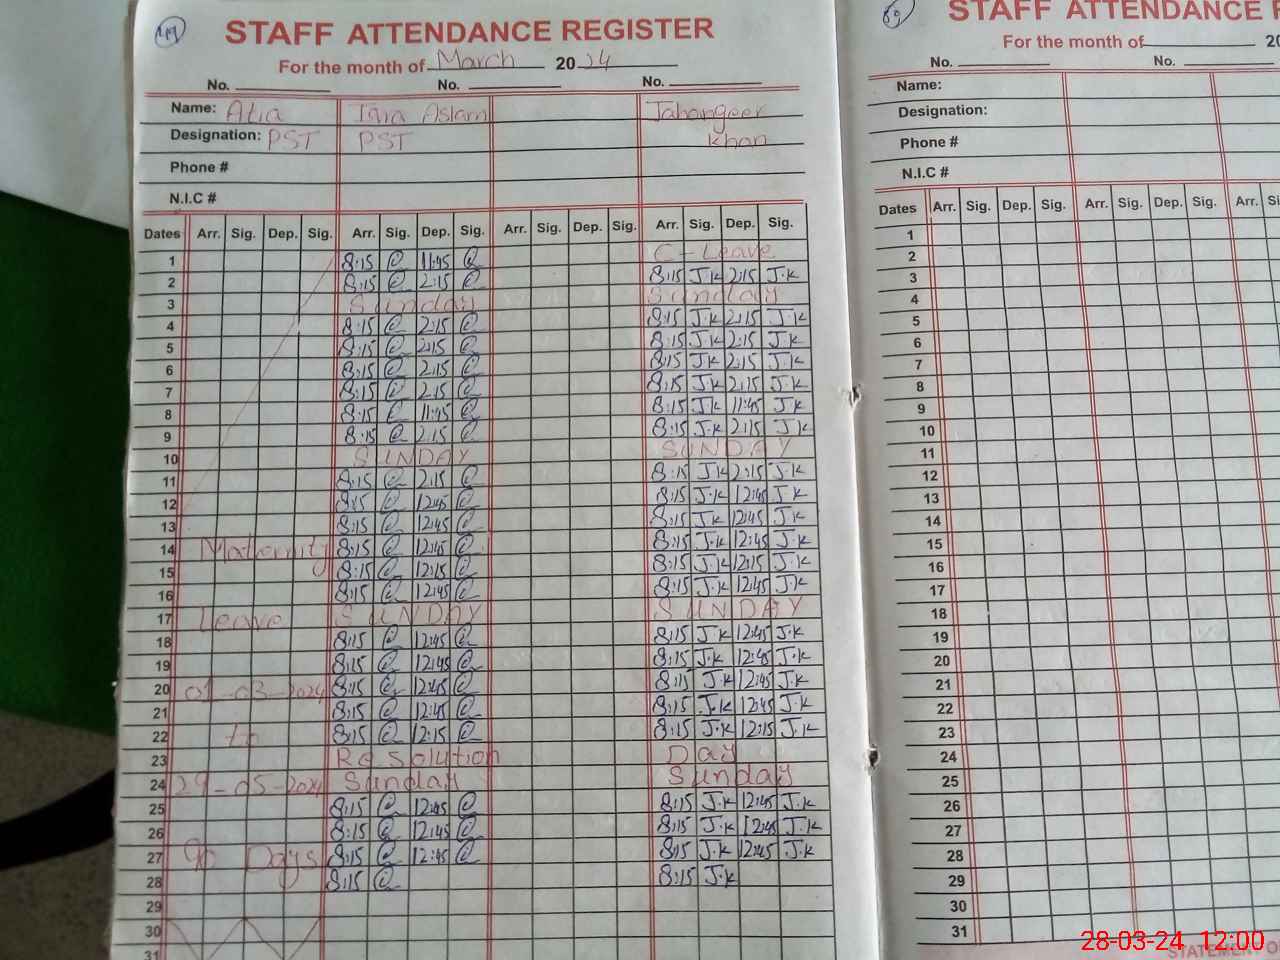 49
STAFF ATTENDANCE REGISTER
For the month of March 2024
No. No. No.
Name: Atia Iqra Aslam Jahangeer
Designation: PST PST Khan
Phone #
N.I.C #
Dates Arr. Sig. Dep. Sig. Arr. Sig. Dep. Sig. Arr. Sig. Dep. Sig. Arr. Sig. Dep. Sig.
1 8:15 @ 11:45 @ C-Leave
2 8:15 @ 2:15 @ 8:15 J.K 2:15 J.K
3 Sunday Sunday
4 8:15 @ 2:15 @ 8:15 J.K 2:15 J.K
5 8:15 @ 2:15 @ 8:15 J.K 2:15 J.K
6 8:15 @ 2:15 @ 8:15 J.K 2:15 J.K
7 8:15 @ 2:15 @ 8:15 J.K 2:15 J.K
8 8:15 @ 11:45 @ 8:15 J.K 11:45 J.K
9 8:15 @ 2:15 @ 8:15 J.K 2:15 J.K
10 SUNDAY SUNDAY
11 8:15 @ 2:15 @ 8:15 J.K 2:15 J.K
12 8:15 @ 12:45 @ 8:15 J.K 12:45 J.K
13 8:15 @ 12:45 @ 8:15 J.K 12:45 J.K
14 Maternity 8:15 @ 12:45 @ 8:15 J.K 12:45 J.K
15 8:15 @ 12:15 @ 8:15 J.K 12:15 J.K
16 8:15 @ 12:45 @ 8:15 J.K 12:45 J.K
17 Leave SUNDAY SUNDAY
18 8:15 @ 12:45 @ 8:15 J.K 12:45 J.K
19 8:15 @ 12:45 @ 8:15 J.K 12:45 J.K
20 01-03-2024 8:15 @ 12:45 @ 8:15 J.K 12:45 J.K
21 8:15 @ 12:45 @ 8:15 J.K 12:45 J.K
22 to 8:15 @ 12:15 @ 8:15 J.K 12:15 J.K
23 Resolution Day
24 29-05-2024 Sunday Sunday
25 8:15 @ 12:45 @ 8:15 J.K 12:45 J.K
26 8:15 @ 12:45 @ 8:15 J.K 12:45 J.K
27 90 Days 8:15 @ 12:45 @ 8:15 J.K 12:45 J.K
28 8:15 @ 8:15 J.K
29
30
31
STAFF ATTENDANCE
For the month of 20
No. No.
Name:
Designation:
Phone #
N.I.C #
Dates Arr. Sig. Dep. Sig. Arr. Sig. Dep. Sig. Arr.
1
2
3
4
5
6
7
8
9
10
11
12
13
14
15
16
17
18
19
20
21
22
23
24
25
26
27
28
29
30
31
STATEMENT
28-03-24 12:00